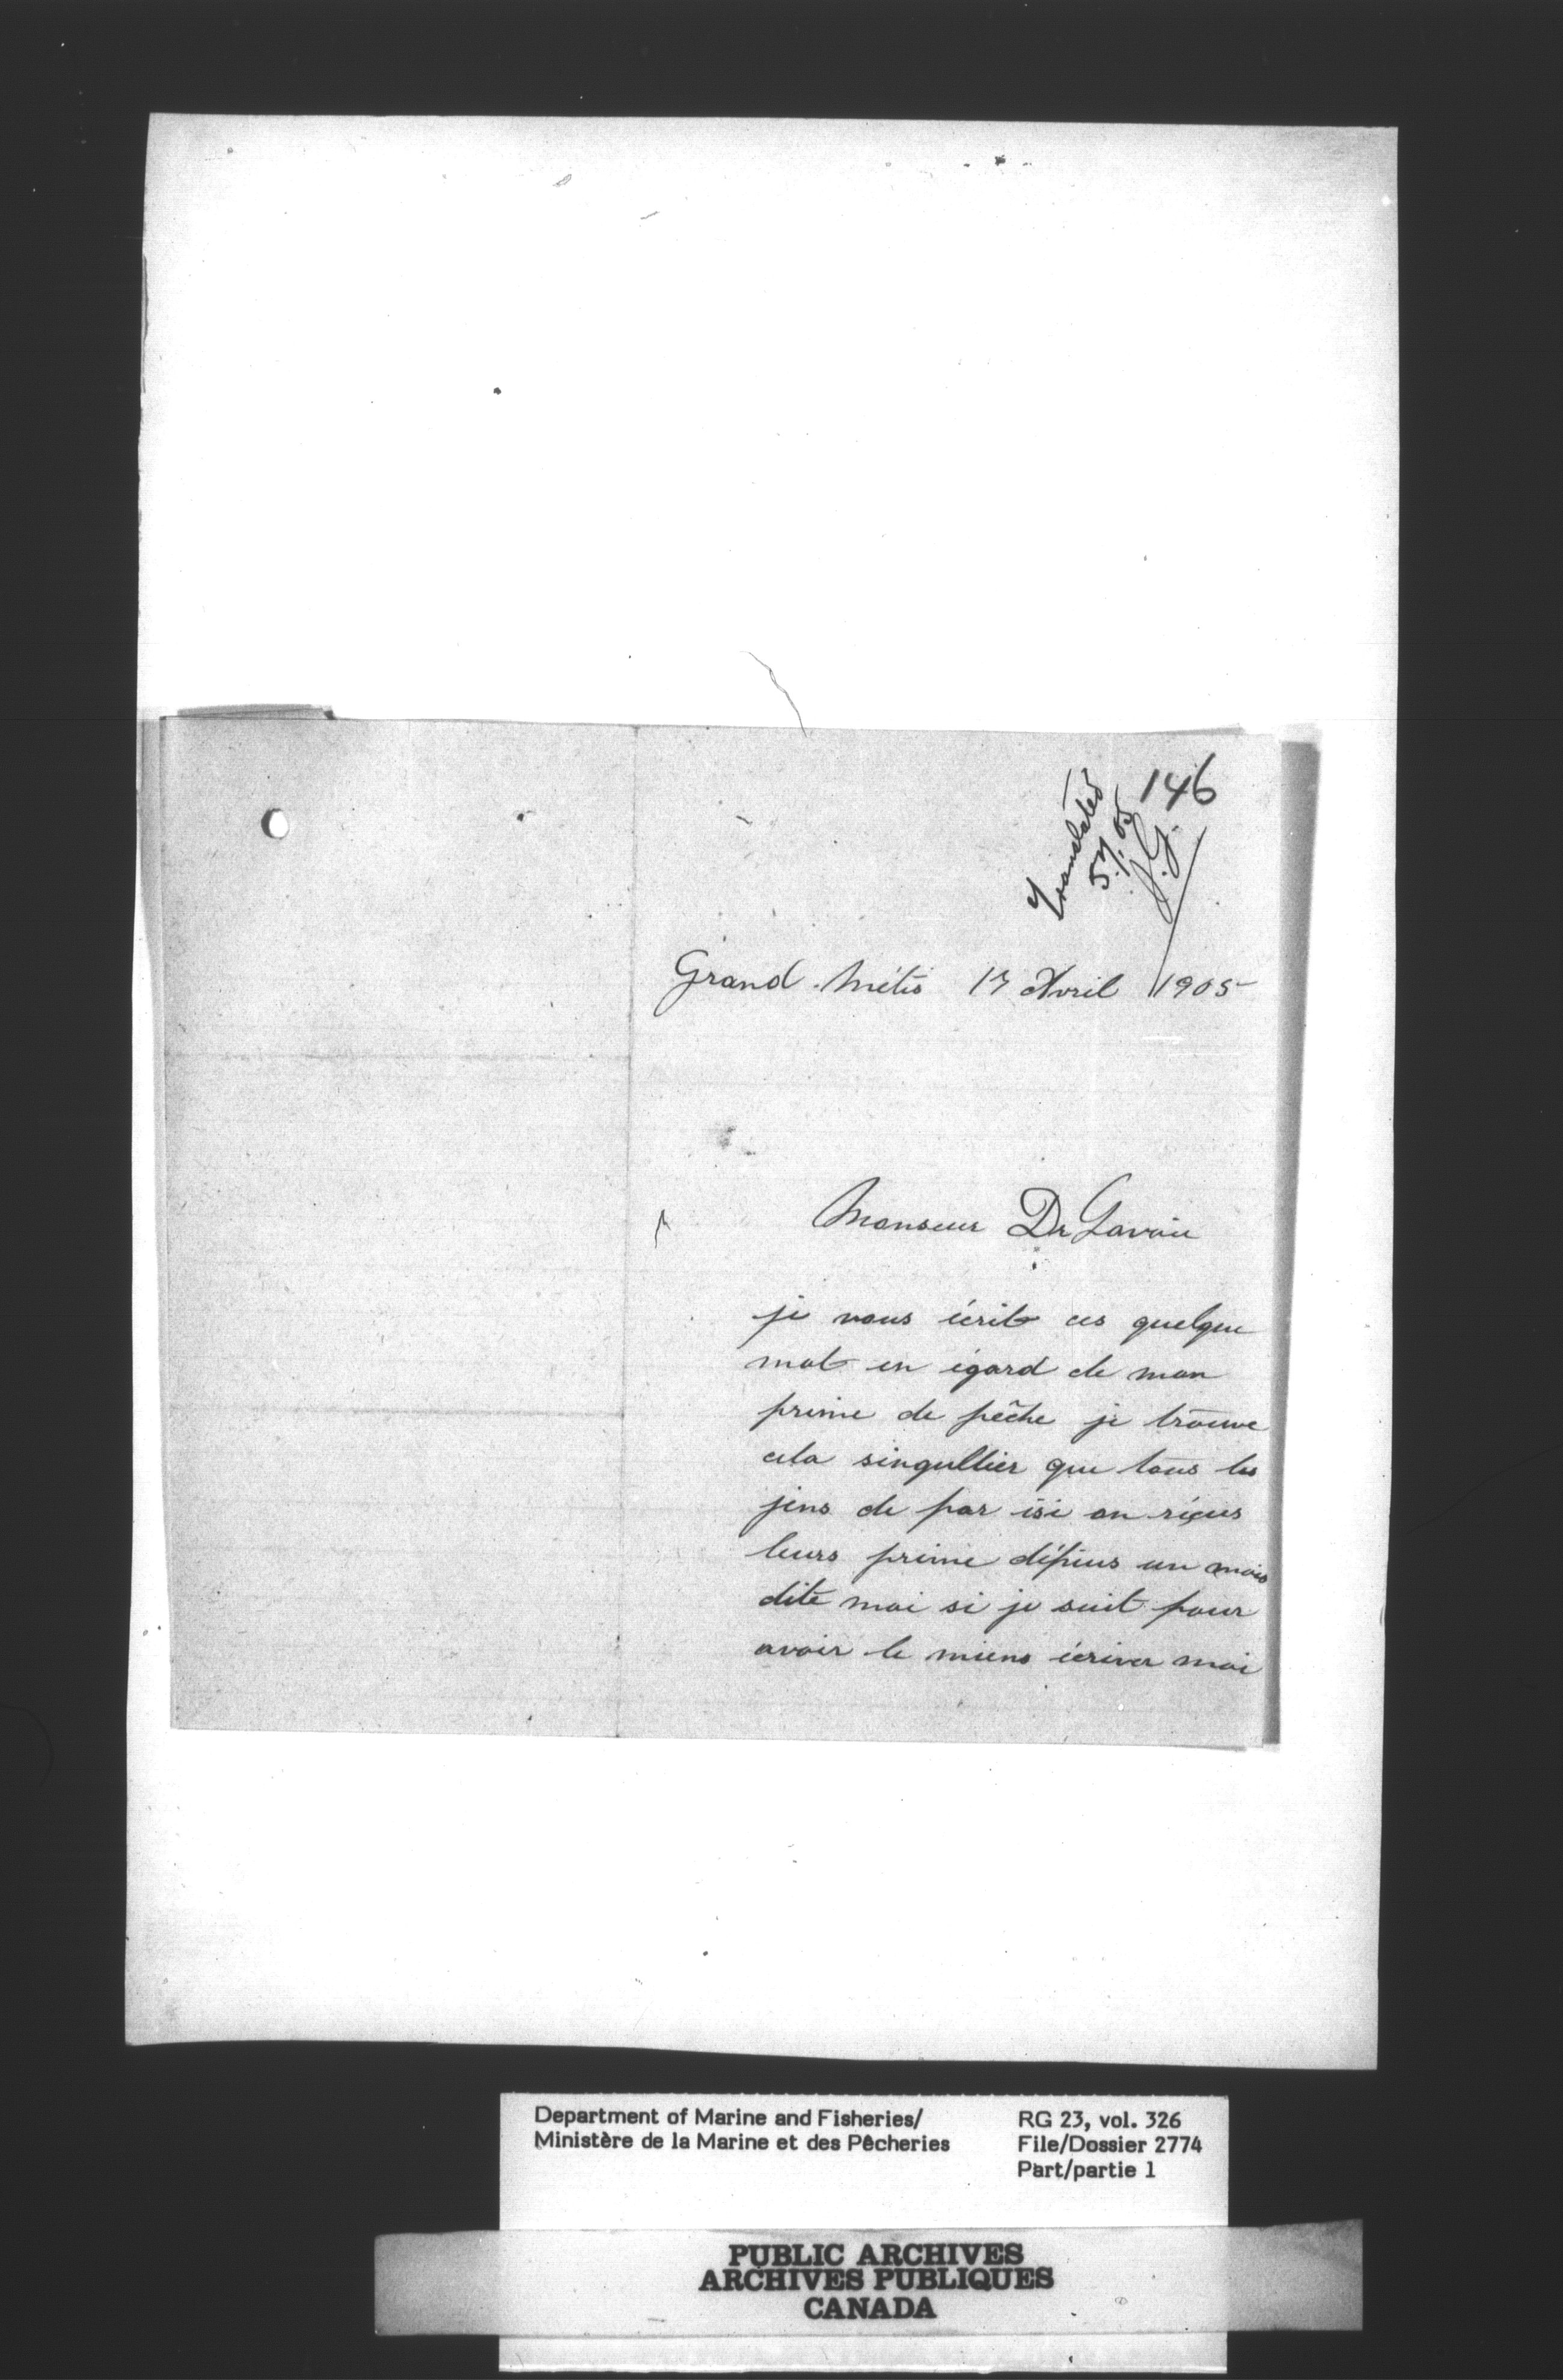 146
Translated
5.7.05
J.G.
Grand Métis 17 Avril 1905
Monseur Dr Lavoie
je vous écrit ces quelque
mot en égard de mon
prime de pêche je trouve
cela singullier que tous les
jens de par isi on riçus
leurs prime dépius un mois
dite moi si je suit pour
avoir le miens ècriver moi
Department of Marine and Fisheries/
Ministère de la Marine et des Pêcheries
RG 23, vol. 326
File/Dossier 2774
Part/partie 1
PUBLIC ARCHIVES
ARCHIVES PUBLIQUES
CANADA